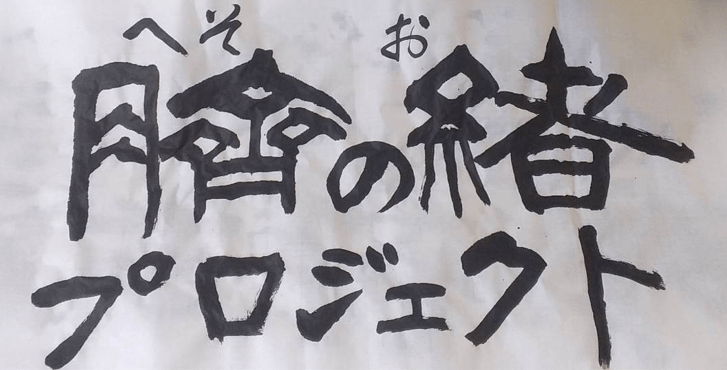 へそ お
臍の緒
プロジェクト